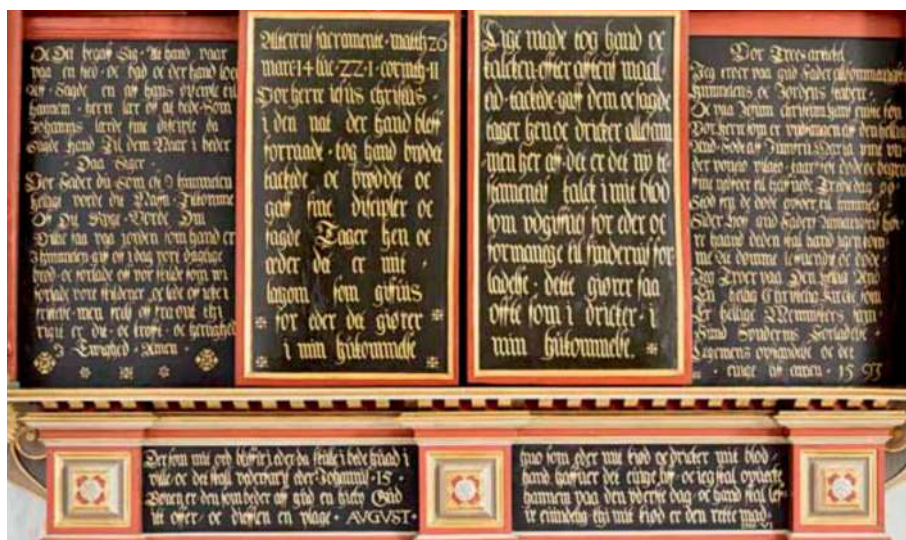 Oc Det begaff Sig · At hand vaar
paa en sted · oc bad oc der hand loed
aff · Sagde en aff hans disciple til
hannem · herre lær os at bede · Som
Johannis lærde sine disciple da
Sagde hand Til dem Naar i beder
Daa Siger ·
Vor Fader du Som est I himmelen
hellige vorde dit Naffn · Tilkomme
Os Dit Rige · Vorde Din
Villie saa paa jorden som hand er
I himmelen giff os i dag vort daglige
brød · oc forlade os vor skuld som wi
forlade vore skyldener · oc lede os icke i
fristelse · men frels os fra ont thi
rigit er dit · oc krafft · oc herlighed
I Ewighed · Amen ·
Alterens sacramente · matth 26
marc 14 luc · 22 · 1 · corinth · 11
Vor herre iesus christus ·
i den nat der hand bleff
forraade · tog hand brødet
tackede oc brøddet oc
gaff sine discipler oc
sagde Tager hen oc
æder det er mit ·
legom som giffuis
for eder det giører
i min hukommelse
Lige made tog hand oc
kalcken effter afftens maal-
tid · tackade · gaff dem oc sagde
tager hen oc dricker alle sam-
men her aff det er det ny te-
stamentis kalck i mit blod
som vdgiffuis for eder oc
for mange til syndernis for-
ladelse · dette giører saa
offte som i dricker · i
min hukommelse.
Vor Troes artickel
Jeg troer paa gud Fader allsommectigste
himmelens oc Jordens skabere ·
Oc paa Jesum christum hans eniste søn
Vor herre som er vndfangen aff den hellig
And · Fød aff Jumfru Maria pine vn-
der poncio pilato · kaarsfest døde oc begraffuen
Jeg Troer paa Den hellig And
En hellig Christelig Kircke som
Er hellige Menniskers Sam-
fund Syndernis Forladelse ·
Legemens opstandelse oc det
euige liff amen · 1593
Der som mit ord bliffuer i eder da skulle i bede huad i
ville oc det skall vederfaris eder · Johannis · 15 ·
Bønen er den som beder aff gud en hielp Gud
itt offer · oc dieffelen en plage · AVGVST ·
huo som eder mit kiød oc dricker mit blod ·
hand haffuer det euige liff · oc ieg skal opuecke
hannem paa den yderste dag · oc hand skal leff-
ue euindelig thi mit kiød er den rette mad ·
Joh VI